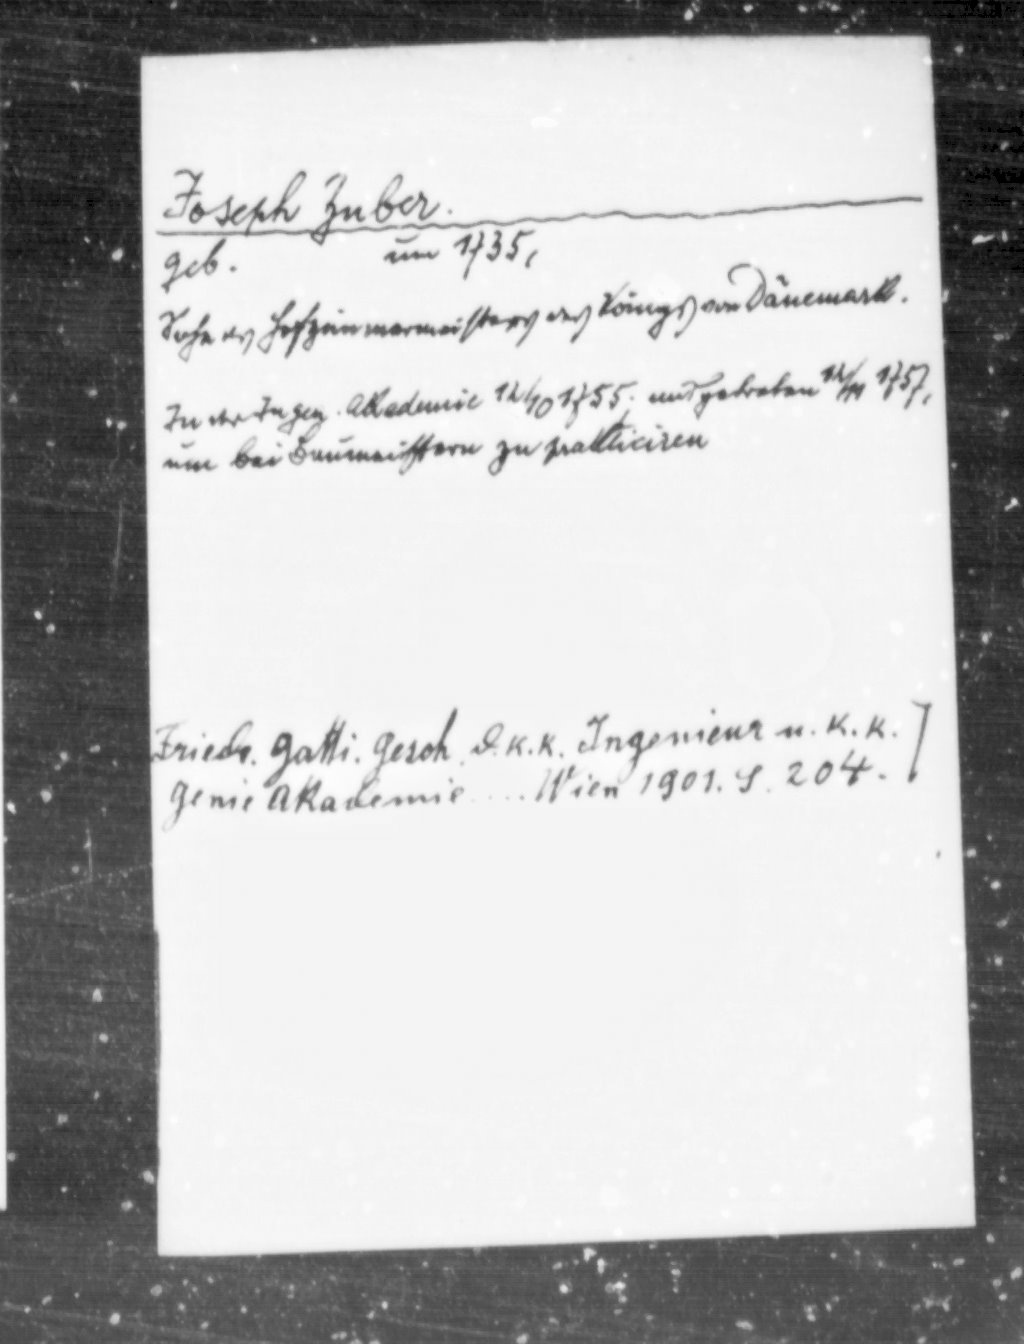 Joseph Zuber.
geb. um 1735,
Sohn des Hofzimmermeisters des Königs von Dänemark.
In der Ingen. Akademie 12/10 1755. ausgetreten 12/11 1757,
um bei Baumeistern zu prakticiren
Friedr. Gatti. Gesch. d. K. K. Ingenieur u. K. K.
Genie Akademie .... Wien 1901. S. 204.]